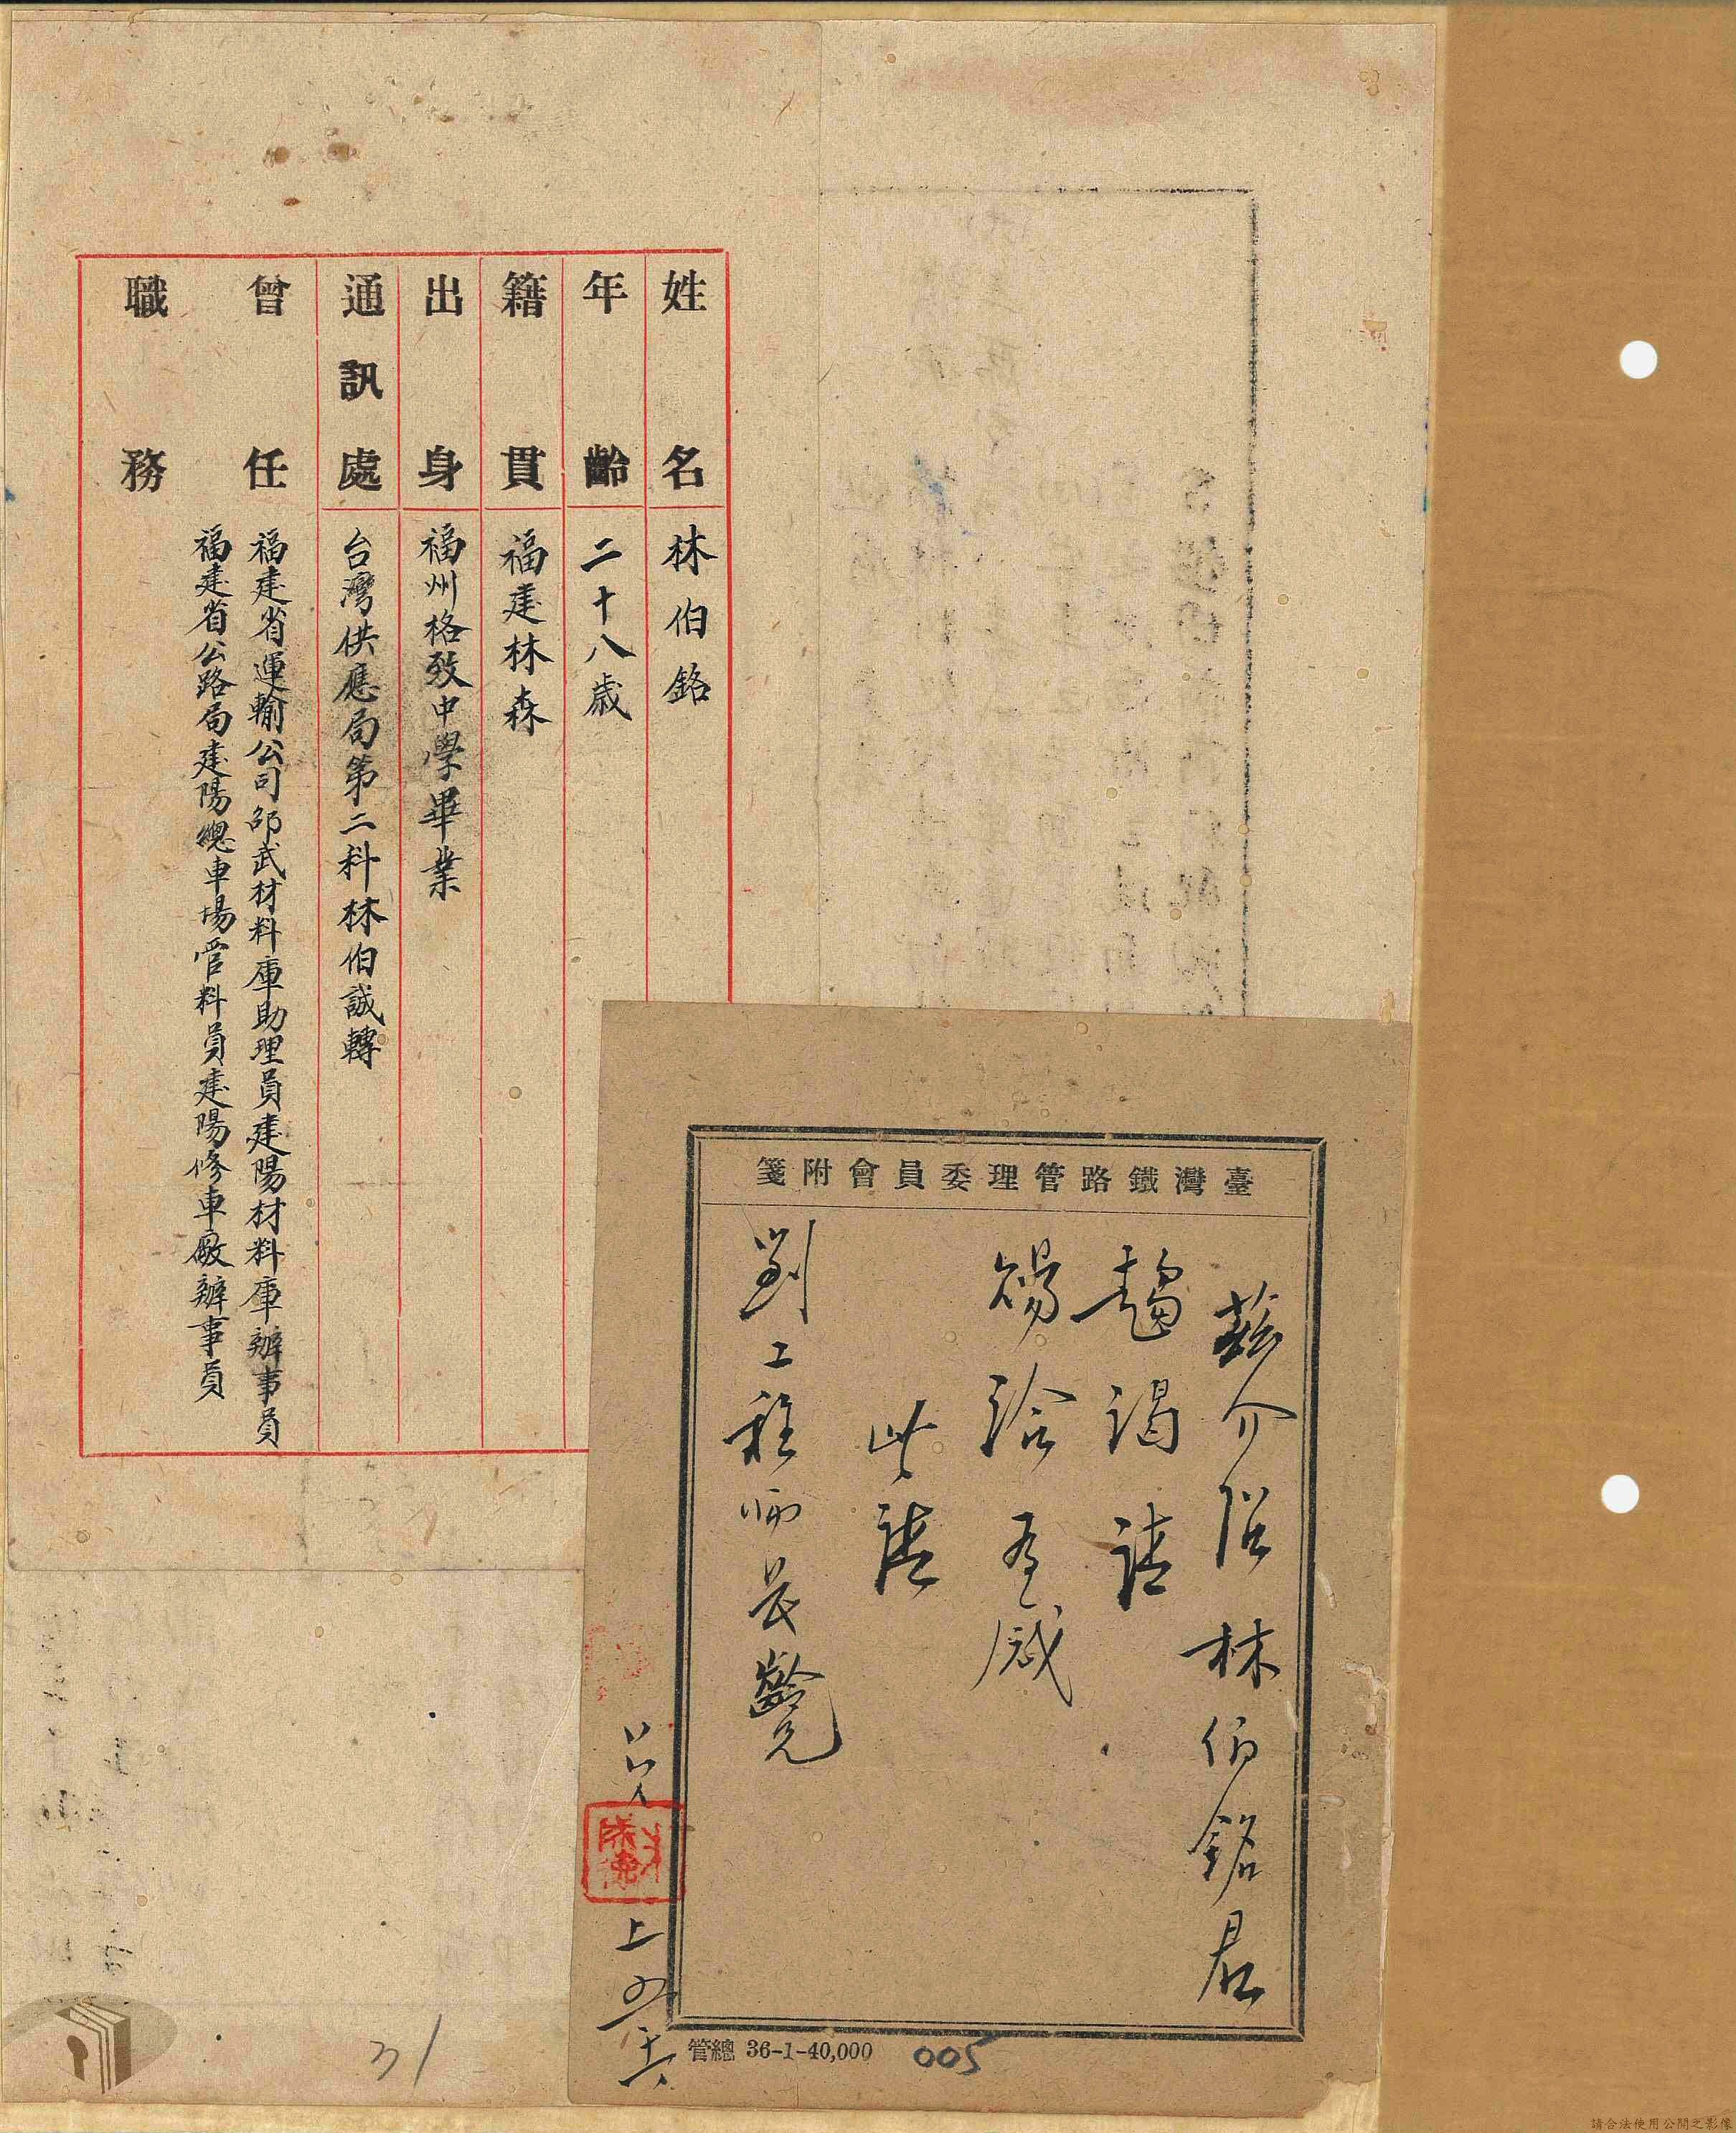 姓名 林伯銘
年齡 二十八歲
籍貫 福建林森
出身 福州格致中學畢業
通訊處 台灣供應局第二科林伯誠轉
曾任職務
福建省運輸公司邵武材料庫助理員建陽材料庫辦事員
福建省公路局建陽總車場管料員建陽修車廠辦事員
臺灣鐵路管理委員會附箋
茲介紹林伯銘君
趨謁請
賜洽為感
此請
劉工程師長齡兄
上
十六
管總 36-1-40,000
005
31
請合法使用公開之影像